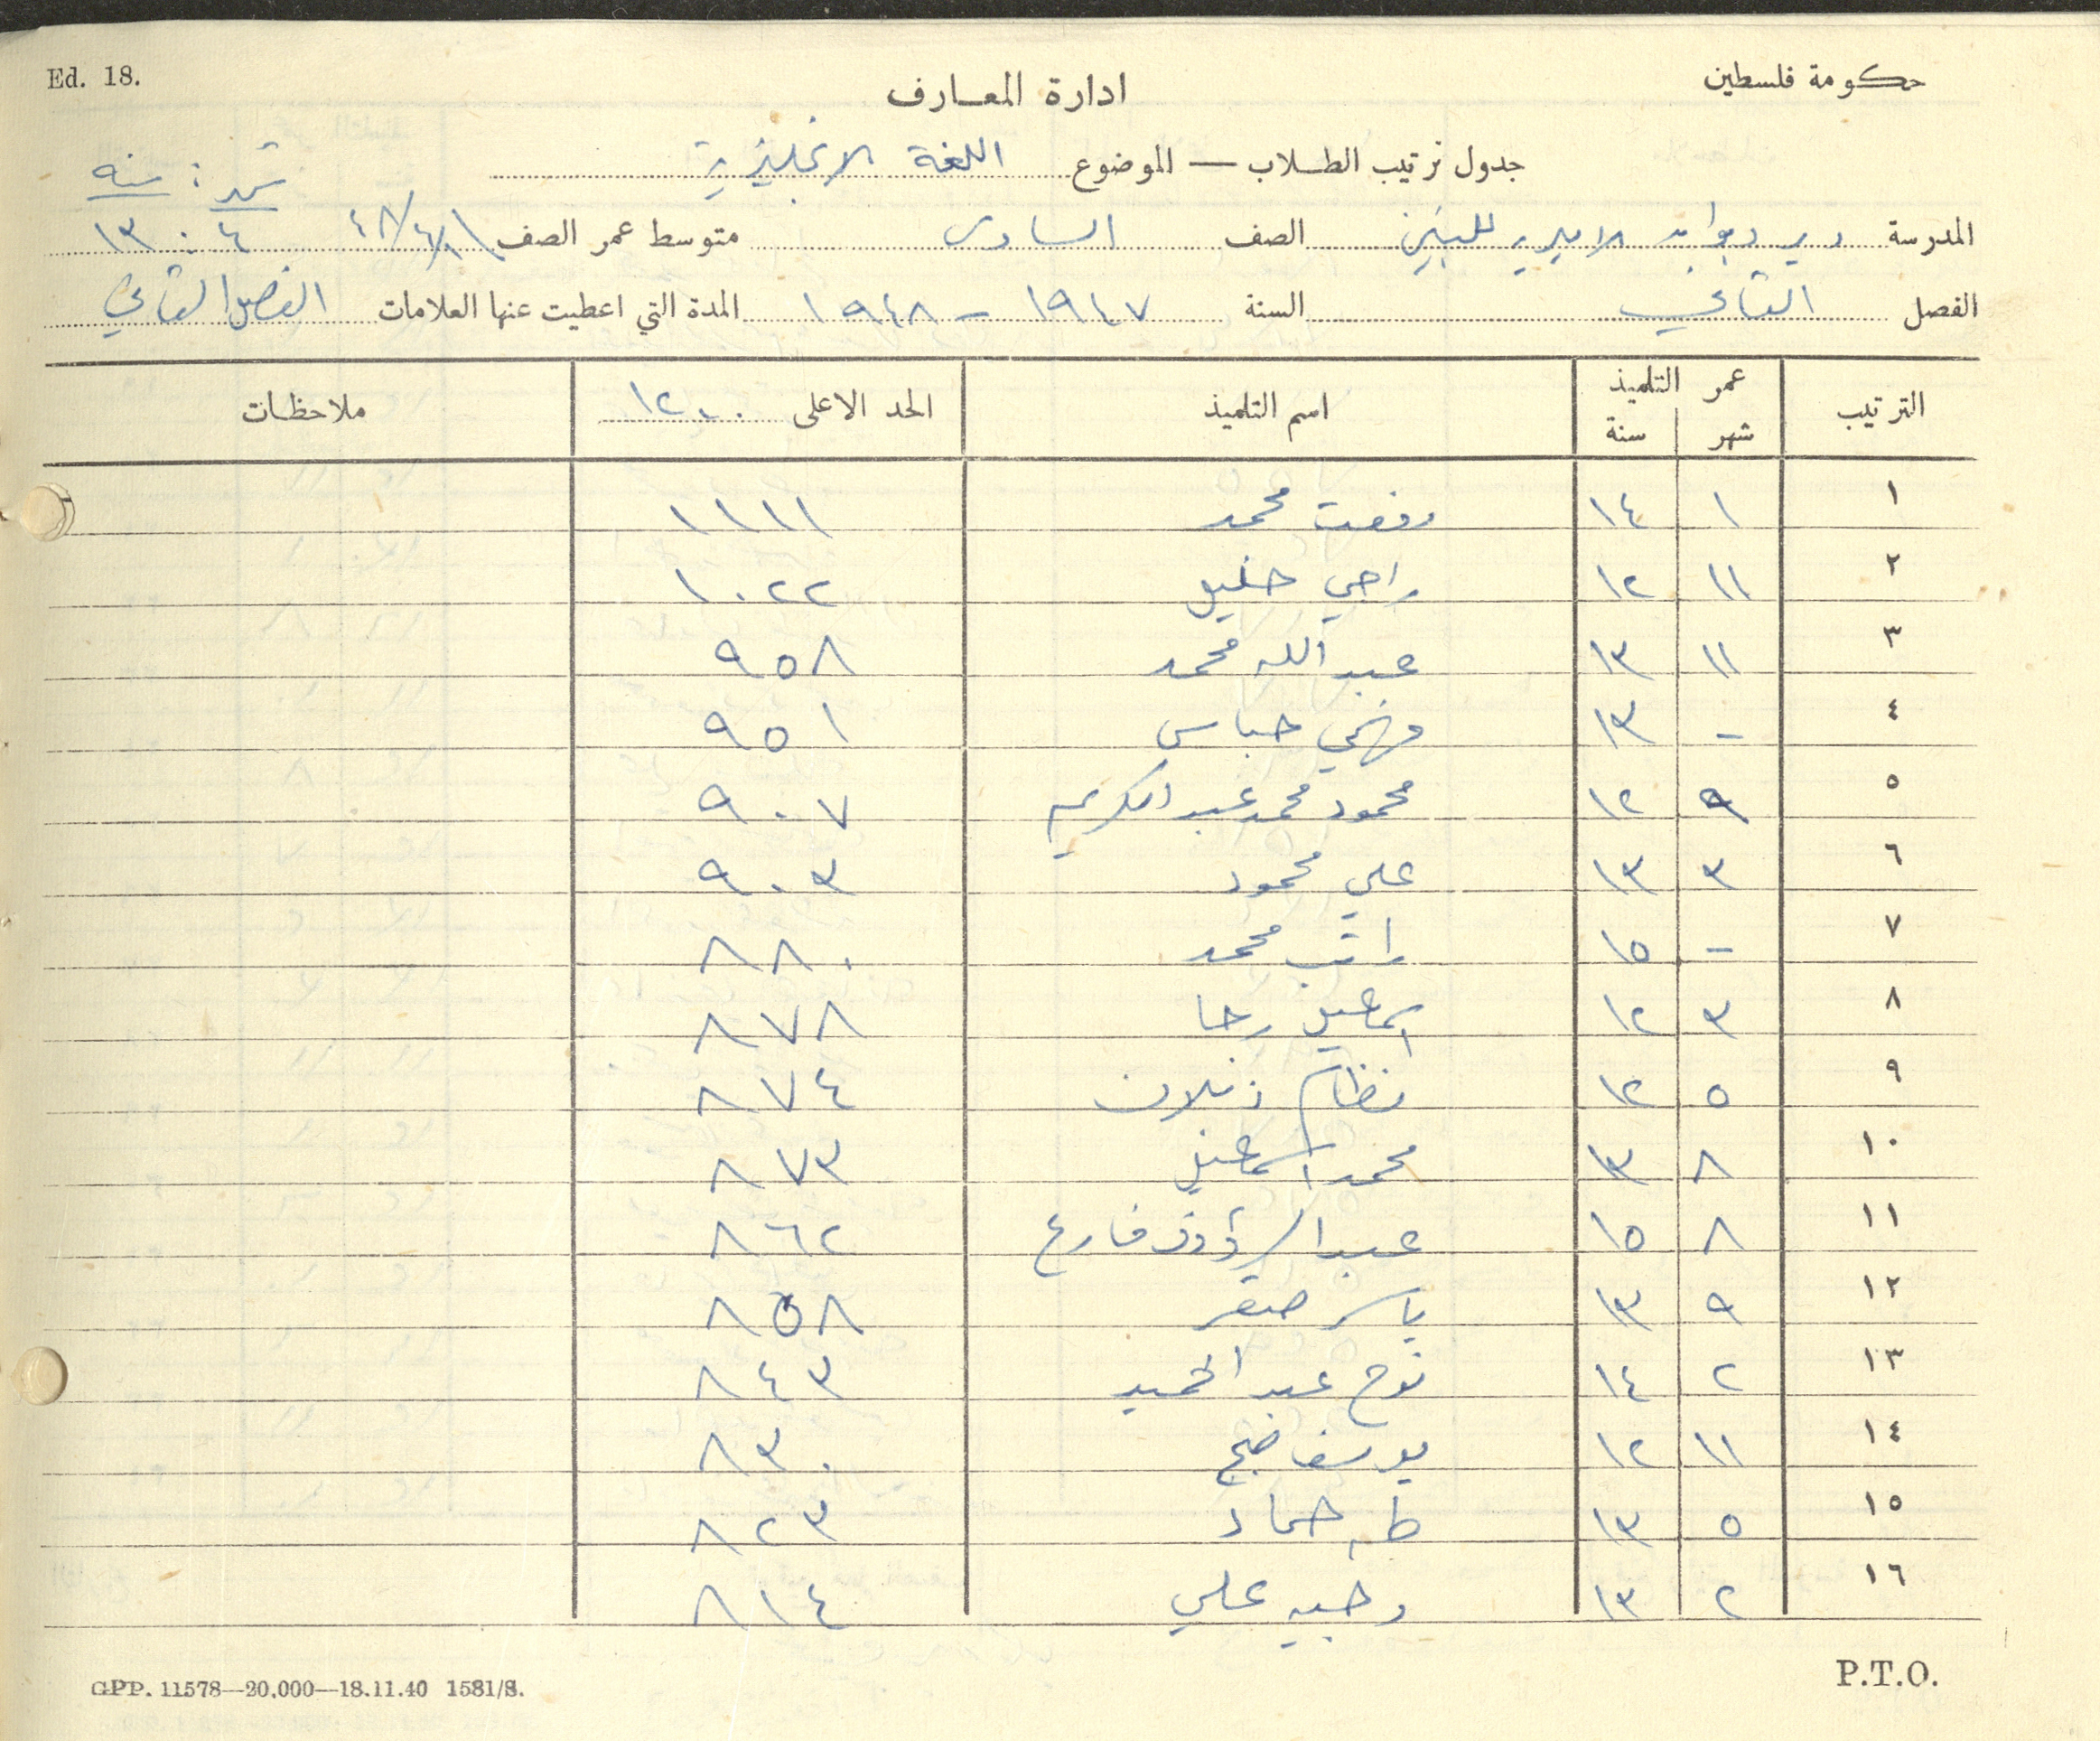 Ed. 18.
حكومة فلسطين
ادارة المعارف
جدول ترتيب الطلاب — الموضوع اللغة الانجليزية
شهر : سنه
المدرسة دير ديوان الاميرية للبنين الصف السادس متوسط عمر الصف ٤٨/٤/١ ٤ : ١٣
الفصل الثاني السنة ١٩٤٧ - ١٩٤٨ المدة التي اعطيت عنها العلامات الفصل الثاني
الترتيب عمر التلميذ اسم التلميذ الحد الاعلى ١٢٠٠ ملاحظات
شهر سنة
١ ١ ١٤ رفعت محمد ١١١١
٢ ١١ ١٢ راجي خليل ١٠٢٢
٣ ١١ ١٣ عبد الله محمد ٩٥٨
٤ - ١٣ فهمي عباس ٩٥١
٥ ٩ ١٢ محمود محمد عبد الكريم ٩٠٧
٦ ٣ ١٣ علي محمود ٩٠٣
٧ - ١٥ راتب محمد ٨٨٠
٨ ٣ ١٢ اسماعيل رجا ٨٧٨
٩ ٥ ١٢ نظام ٨٧٤
١٠ ٨ ١٣ محمد اسماعيل ٨٧٣
١١ ٨ ١٥ عبد الرؤوف فارع ٨٦٢
١٢ ٩ ١٣ ياسر صقر ٨٥٨
١٣ ٢ ١٤ نوح عبد الحميد ٨٤٣
١٤ ١١ ١٢ يوسف ٨٣٠
١٥ ٥ ١٣ طه حماد ٨٢٣
١٦ ٢ ١٣ وجيه علي ٨١٤
GPP. 11578—20,000—18.11.40 1581/S.
P.T.O.